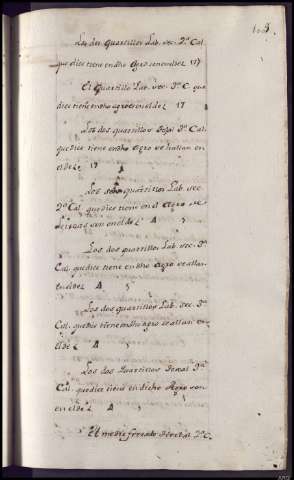 Los dos Quartillos Lab. sec. 2ª Cal.
que dice tiene en dho Agro son en el de 2 17
El Quartillo Lab. sec. 3ª C. que
dice tiene en dho agro es en el de 2 17
Los dos quartillos 3ª Cal.
que dice tiene en dho Agro se hallan en
el de 2 17
Los quartillos Lab. sec.
2ª Cal. que dice tiene en el Agro de
son en el de 2 A
Los dos quartillos Lab. sec. 3ª
Cal. que dice tiene en dho Agro se allan
en el de 2 A
Los dos quartillos Lab. sec. 3ª
Cal. que dice tiene en dho agro se allan en
el de 2 A
Los dos Quartillos 3ª
Cal. que dice tiene en dicho Agro son
en el de 2 A
El medio ferrado 3ª C.